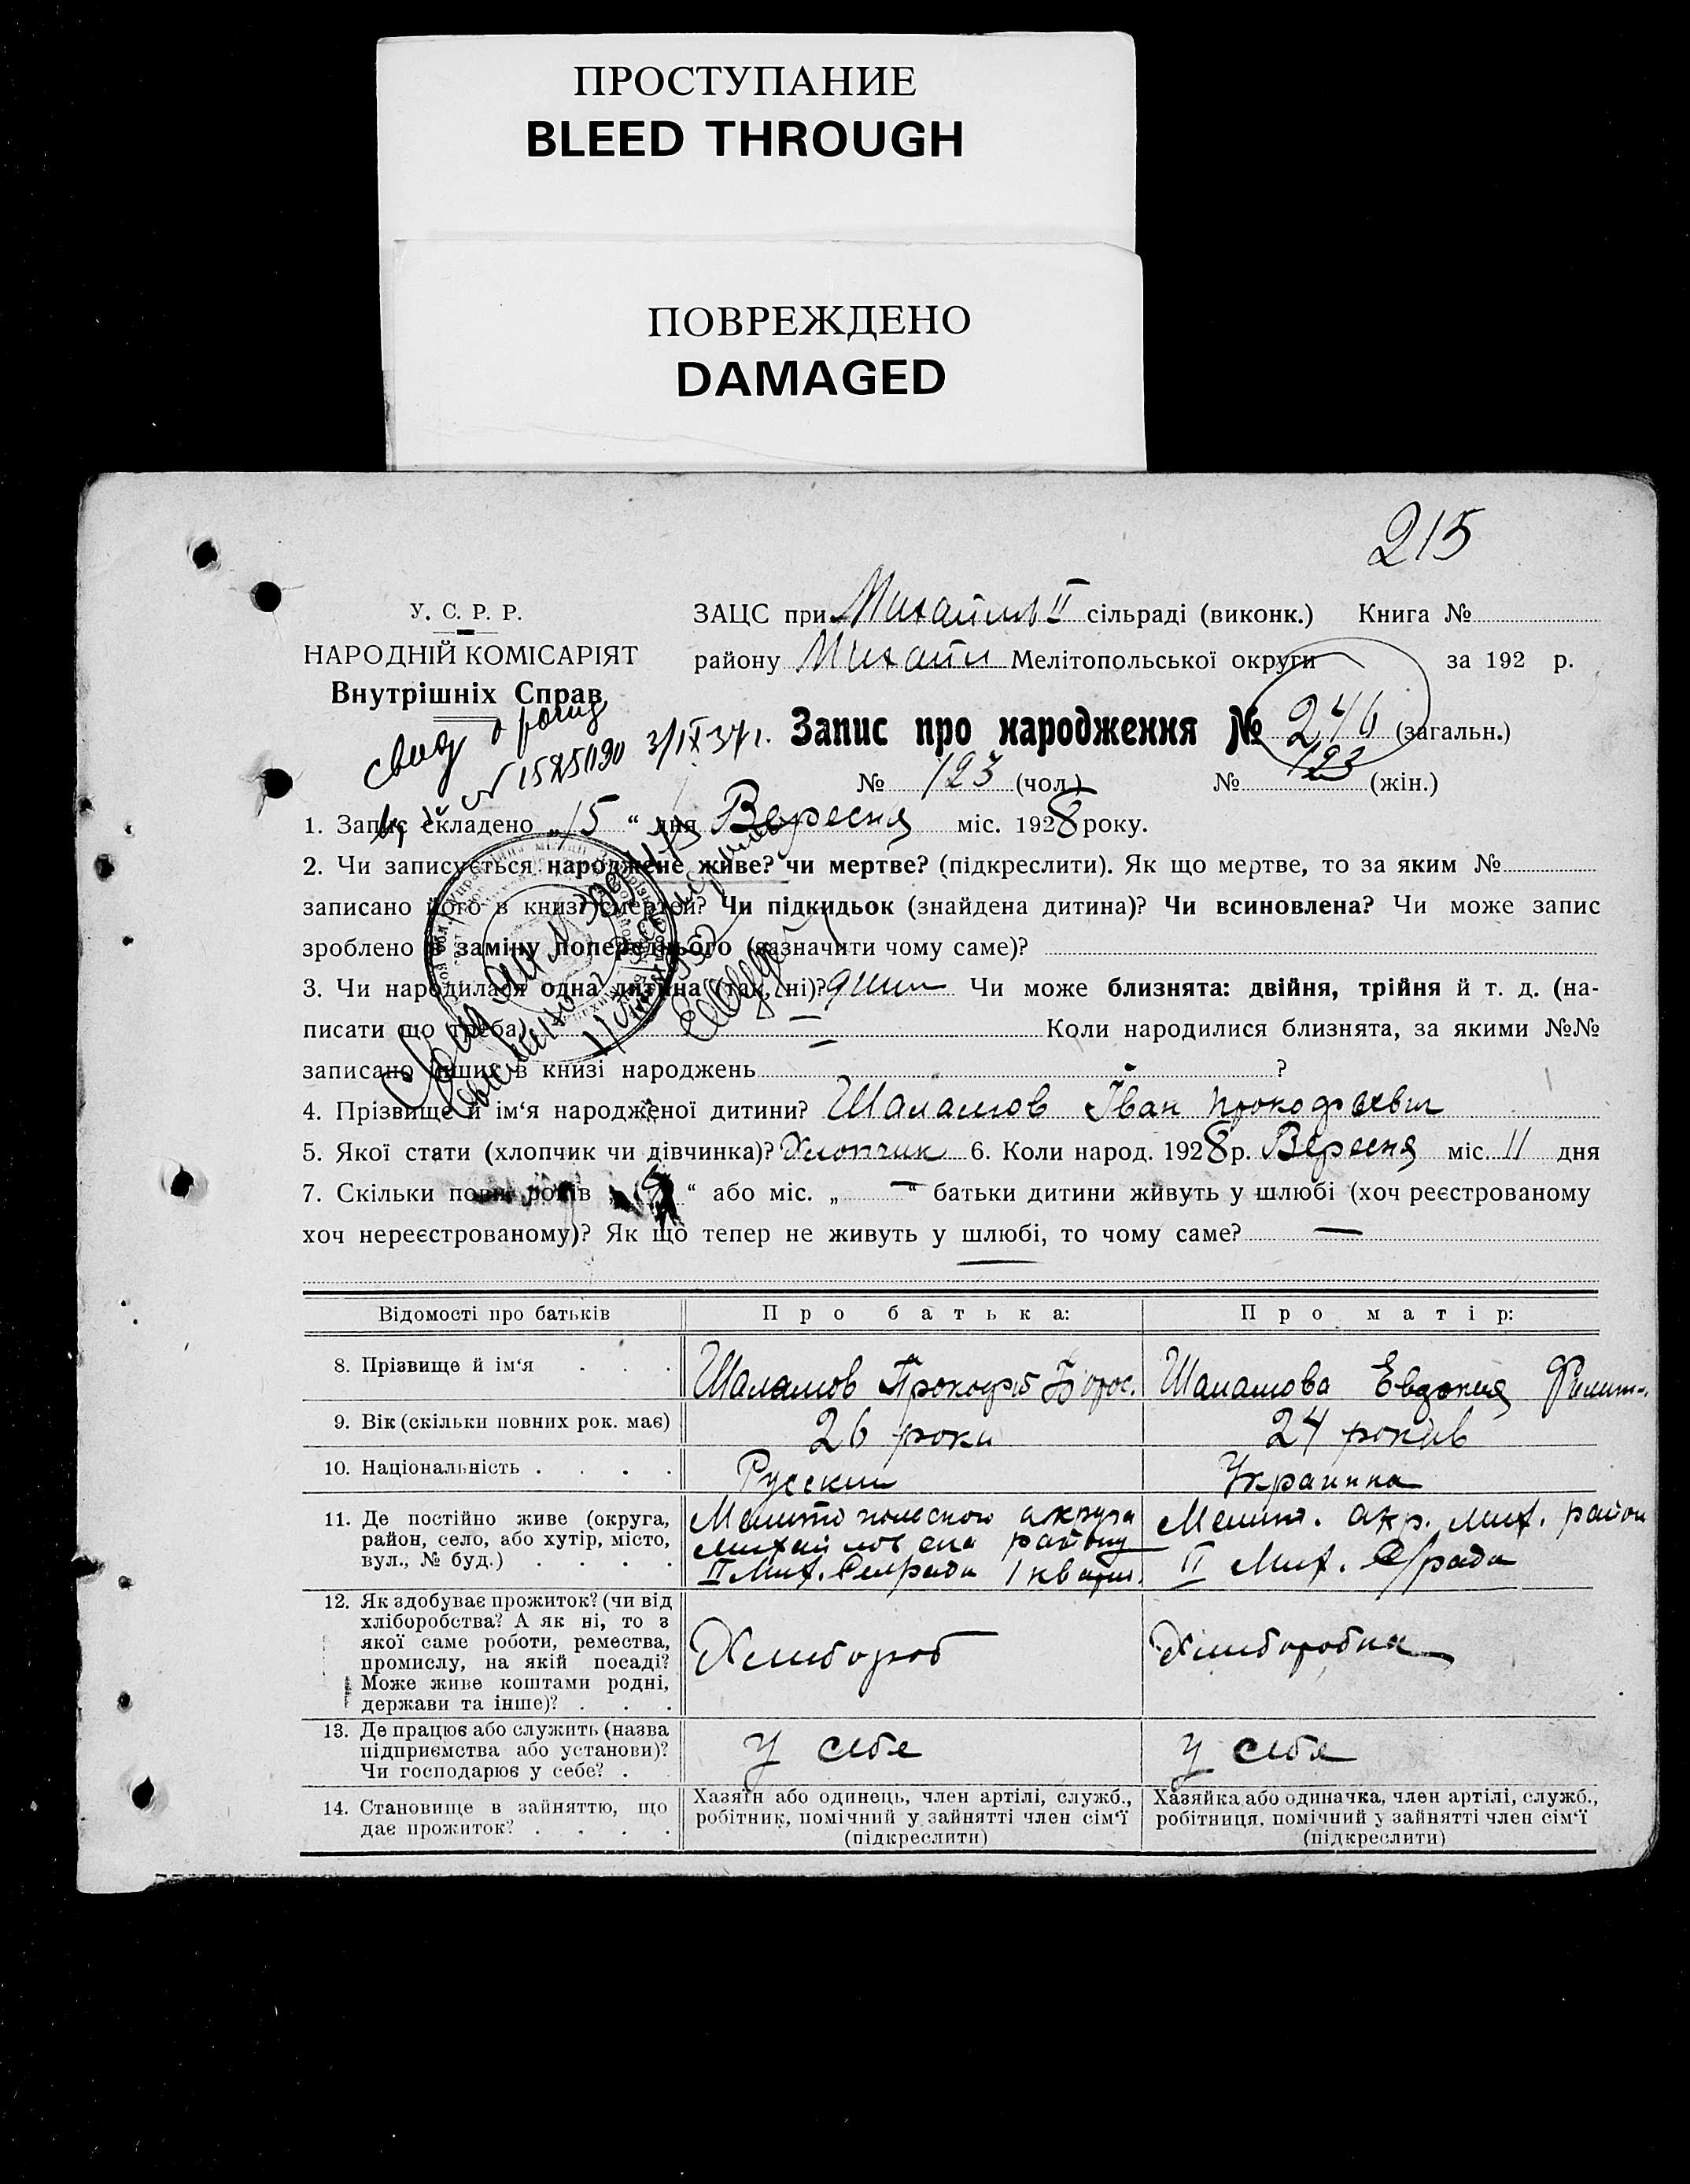 ПРОСТУПАНИЕ
BLEED THROUGH
ПОВРЕЖДЕНО
DAMAGED
215
У. С. Р. Р.
НАРОДНІЙ КОМІСАРІЯТ
Внутрішніх Справ
ЗАЦС при Михайлів II сільраді (виконк.) Книга №
району Михайл Мелітопольської округи за 192 р.
Запис про народження № 246 (загальн.)
№ 123 (чол.) № 123 (жін.)
свид о рожд
№ 1525090 3/IX 37 г.
1. Запис складено „15“ дня Вересня міс. 1928 року.
2. Чи записується народжене живе? чи мертве? (підкреслити). Як що мертве, то за яким №
записано його в книзі смертей? Чи підкидьок (знайдена дитина)? Чи всиновлена? Чи може запис
зроблено в заміну попереднього (зазначити чому саме)?
3. Чи народилася одна дитина (так, ні)? Чи може близнята: двійня, трійня й т. д. (на-
писати що треба) Коли народилися близнята, за якими №№
записано інших в книзі народжень ?
4. Прізвище й ім‘я народженої дитини? Шаламов Іван Прокофевич
5. Якої стати (хлопчик чи дівчинка)? Хлопчик 6. Коли народ. 1928 р. Вересня міс. 11 дня
7. Скільки повн. років “ або міс. „ — “ батьки дитини живуть у шлюбі (хоч реєстрованому
хоч нереєстрованому)? Як що тепер не живуть у шлюбі, то чому саме? —
Відомості про батьків Про батька: Про матір:
8. Прізвище й ім‘я . . . Шаламов Прокофій Борос. Шаламова Евдокия Филип.
9. Вік (скільки повних рок. має) 26 роки 24 років
10. Національність . . . . Русский Украинка
11. Де постійно живе (округа,
район, село, або хутір, місто,
вул., № буд.) . . . .
Мелитопольского округа
Михайловска району
II Мих. Селрада 1 кварт.
Мелит. окр. Мих. район
II Мих. С/рада
12. Як здобуває прожиток? (чи від
хліборобства? А як ні, то з
якої саме роботи, ремества,
промислу, на якій посаді?
Може живе коштами родні,
держави та інше)? . . .
Хлибороб
Хлиборобка
13. Де працює або служить (назва
підприємства або установи)?
Чи господарює у себе? .
У себе
У себе
14. Становище в зайняттю, що
дає прожиток? . . . .
Хазяїн або одинець, член артілі, служб.,
робітник, помічний у зайнятті член сім‘ї
(підкреслити)
Хазяйка або одиначка, член артілі, служб.,
робітниця, помічний у зайнятті член сім‘ї
(підкреслити)